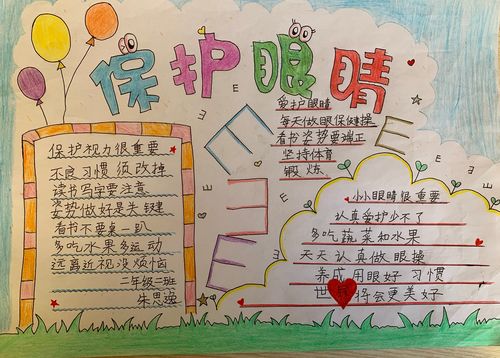 保护眼睛
保护视力很重要
不良习惯须改掉
读书写字要注意
姿势做好是关键
看书不要桌上趴
多吃水果多运动
远离近视没烦恼
二年级二班
爱护眼睛
每天做眼保健操
看书姿势要端正
坚持体育
锻炼
E
E
E
E
E
小小眼睛很重要
认真爱护少不了
多吃蔬菜和水果
天天认真做眼操
养成用眼好习惯
将会更美好